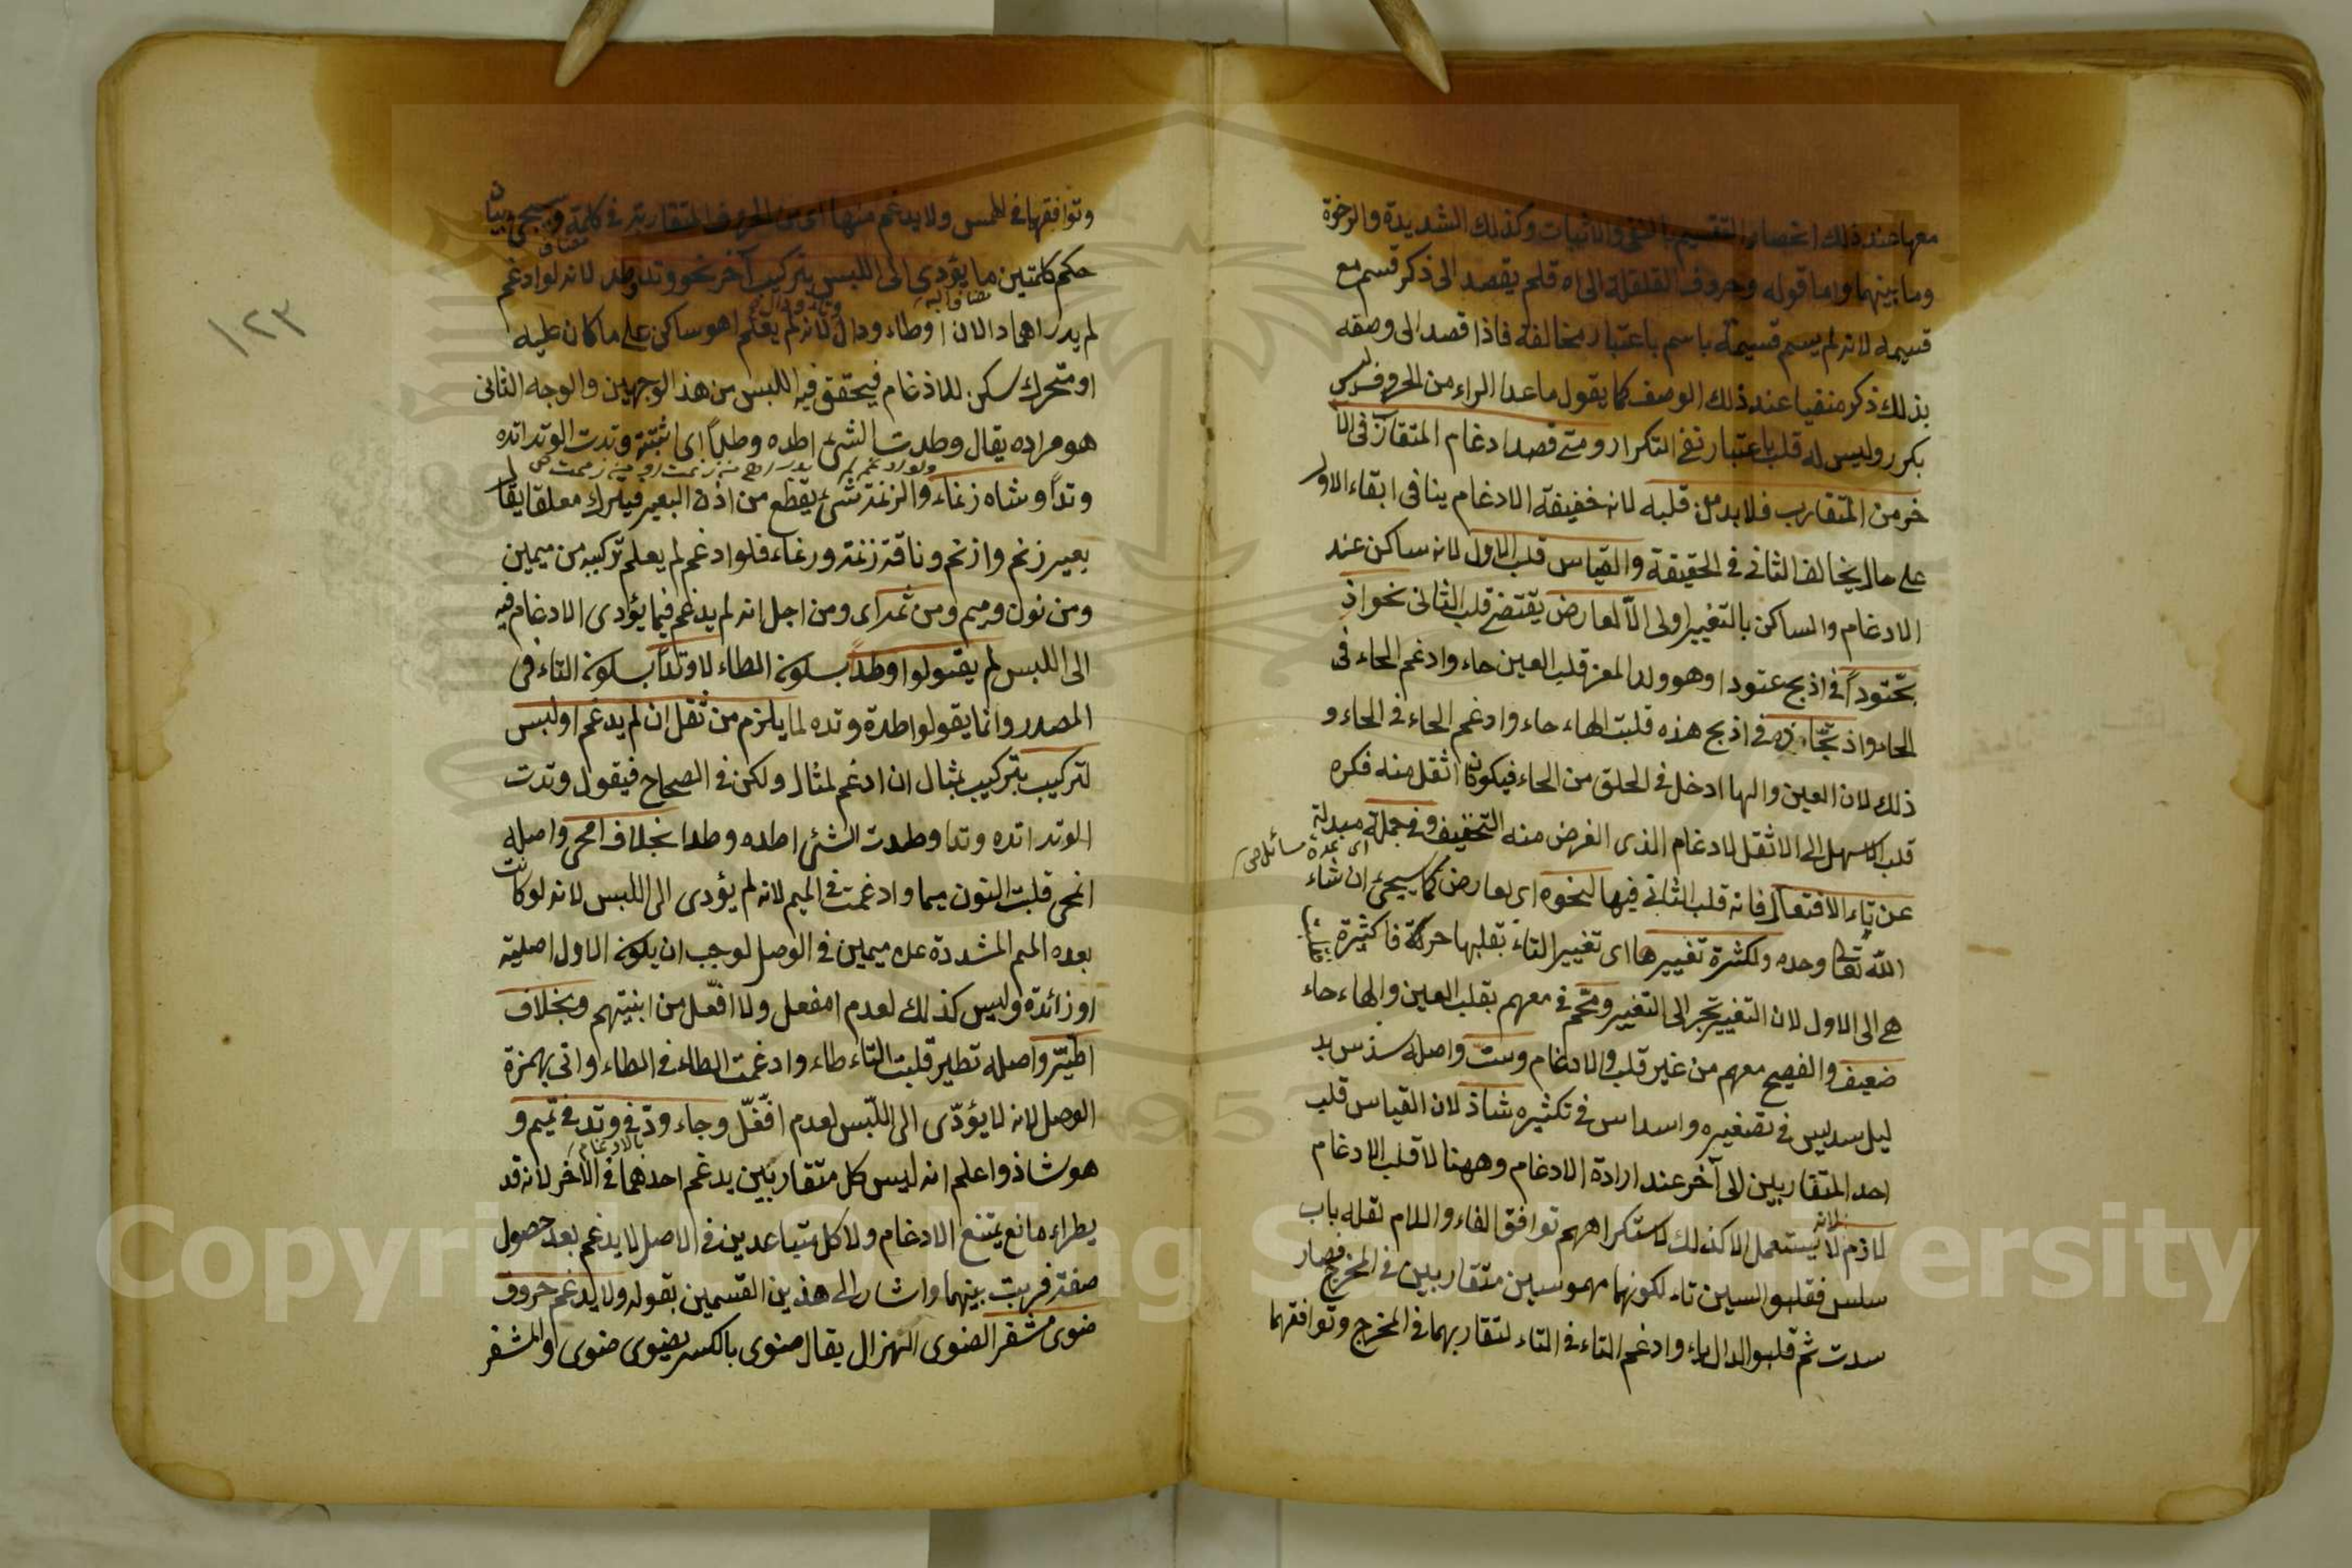 معها عند ذلك انحصار التقسيم بالنفي والاثبات وكذلك الشديدة والرخوة
وما بينهما واما قوله وحروف القلقلة الى اه فلم يقصد الى ذكر قسم مع
قسيمه لانه لم يسم قسيمة باسم باعتبار مخالفة فاذا قصد الى وصفه
بذلك ذكر منفيا عند ذلك الوصف كما يقول ماعدا الراء من الحروف ليس
بكرر وليس له قلب باعتبار نفي التكرار ومتى قصد ادغام المتقارن في الا
خر من المتقارب فلابد من قلبه لان خفيفة الادغام ينافي ابقاء الاول
على حال يخالف الثاني في الحقيقة والقياس قلب الاول لانه ساكن عند
الادغام والساكن بالتغيير اولى الا لعارض يقتضي قلب الثاني نحو اذ
بحتودا في اذبح عتودا وهو ولد المعز قلب العين حاء وادغم الحاء في
الحاء واذ بحاذه في اذبح هذه قلبت الهاء حاء وادغم الحاء في الحاء و
ذلك لان العين والها ادخل في الحلق من الحاء فيكونان اثقل منه فكره
قلب الاسهل الى الاثقل لادغام الذي الغرض منه التخفيف وفي جملة مبدلة
اي عدة مسائل صح
عن تاء الافتعال فانه قلب الثاني فيها لنحوه اي لعارض كما سيجئ ان شاء
الله تعالى وحده ولكثرة تغييرها اى تغيير التاء بقلبها حركة فاكثيرة
هي الى الاول لان التغيير يجر الى التغيير ومحم في معهم بقلب العين والهاء حاء
ضعيف والفصيح معهم من غير قلب والادغام وست واصله سدس بد
ليل سديس في تصغيره واسداس في تكثيره شاذ لان القياس قلب
احد المتقاربين الى آخر عند ارادة الادغام وههنا لا قلب الادغام
لازم لانه لا يستعمل الا كذلك لاستكراههم توافق الفاء واللام نقله باب
سلس فقلبوا السين تاء لكونهما مهموسين متقاربين في المخرج فصار
سدت ثم قلبوا الدال تاء وادغم التاء في التاء لتقاربهما في المخرج وتوافقهما
١٢٣
وتوافقهما في الهمس ولا يدغم منها اى من الحروف المتقاربة في كلمة وسيجئ بيان
حكم كلمتين ما يؤدي الى اللبس بتركيب آخر نحو وتد وطد لانه لو ادغم
لم يدر اهما دالان او طاء ودال لانه لم يعلم اهو ساكن على ما كان عليه
او متحرك سكن للادغام فيحقق فيه اللبس من هذا الوجهين والوجه الثاني
هو مراده يقال وطدت الشئ اطده وطدا اى اثبته وتدت الوتد اتده
وتدا وشاه زنماء والزنمة شئ يقطع من اذن البعير فيترك معلقا يقال
بعير زنم وازنم وناقة زنمة وزنماء فلو ادغم لم يعلم تركيبه من ميمين
ومن نون وميم ومن ثم اى ومن اجل انه لم يدغم فيما يؤدى الادغام فيه
الى اللبس لم يقولوا وطدا بسكون الطاء لا وتدا بسكون التاء في
المصدر وانما يقولوا طدة وتده لما يلزم من ثقل ان لم يدغم او لبس
لتركيب بتركيب بمثال ان ادغم لمثال ولكن في الصحاح فيقول وتدت
الوتد اتده وتدا وطدت الشئ اطده وطدا بخلاف امحى واصله
انمحى قلبت النون ميما وادغمت في الميم لانه لم يؤدى الى اللبس لانه لو كانت
بعده الميم المشددة على ميمين في الوصل لوجب ان يكون الاول اصلية
او زائدة وليس كذلك لعدم امفعل ولا افّعل من ابنيتهم وبخلاف
اطيّر واصله تطير قلبت التاء طاء وادغمت الطاء في الطاء واتى بهمزة
الوصل لانه لا يؤدّى الى اللّبس لعدم افّعّل وجاء ودّ في وتد في تميم و
هو شاذ واعلم انه ليس كل متقاربين يدغم احدهما في الاخر لانه قد
بالادغام
يطراء مانع يمتنع الادغام ولا كل متباعدين في الاصل لا يدغم بعد حصول
صفة قربت بينهما واشار الى هذين القسمين بقوله ولا يدغم حروف
ضوى مشفر الضوى الهزال يقال ضوى بالكسر يضوى ضوى والمشفر
Copyright © King Saud University
1957